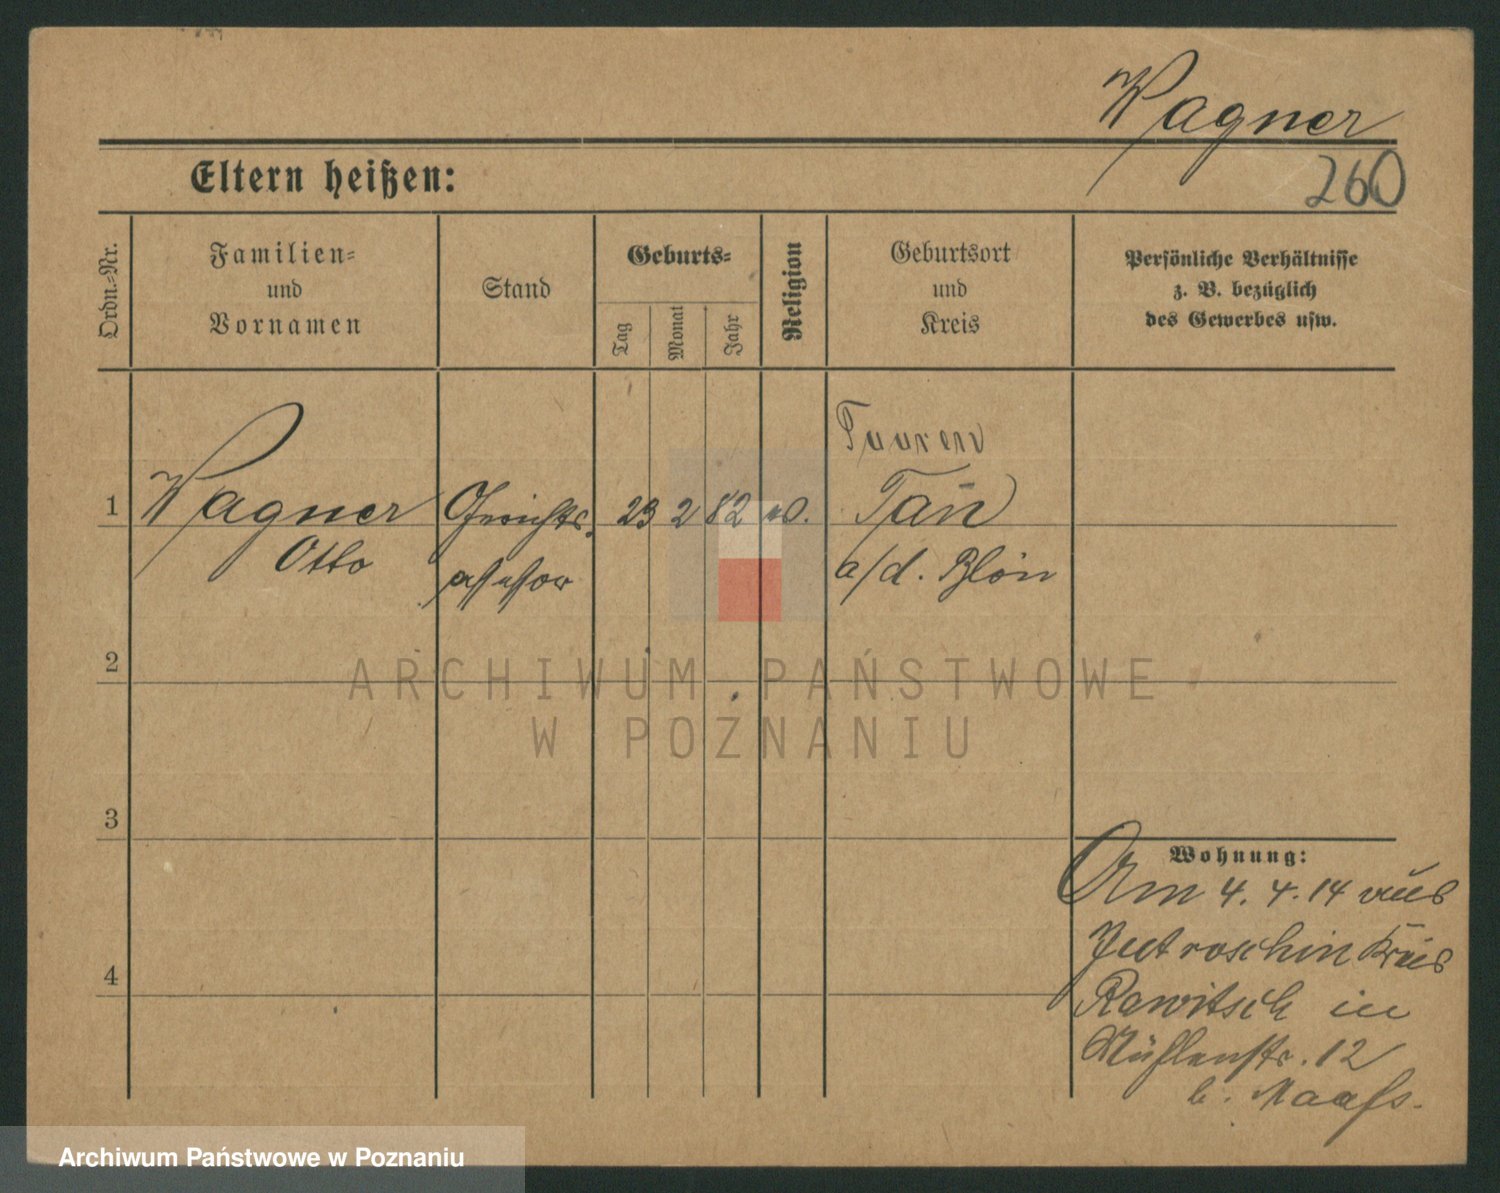 Wagner
260
Eltern heißen:
Ordn.-Nr.
Familien-
und
Vornamen
Stand
Geburts-
Tag
Monat
Jahr
Religion
Geburtsort
und
Kreis
Persönliche Verhältnisse
z. B. bezüglich
des Gewerbes usw.
1
Wagner
Otto
Gerichts-
assessor
23 2 82
a/d.
2
3
4
Wohnung:
Am 4. 4. 14 aus
Jutroschin Kreis
Rawitsch in
Mühlenstr. 12
b. Maaß.
ARCHIWUM PAŃSTWOWE
W POZNANIU
Archiwum Państwowe w Poznaniu